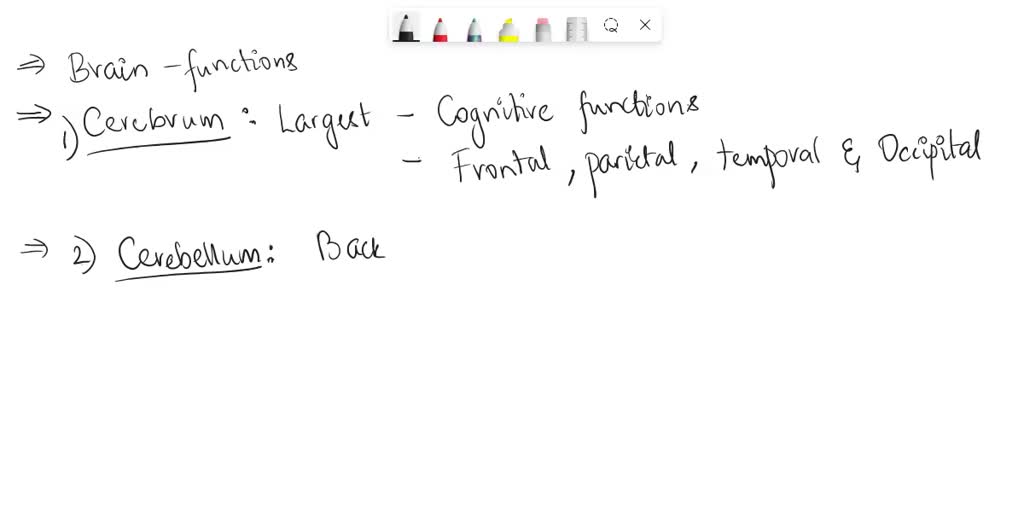 ⇒ Brain - functions
⇒ 1) Cerebrum : Largest - Cognitive functions
- Frontal, parietal, temporal & Occipital
⇒ 2) Cerebellum : Back